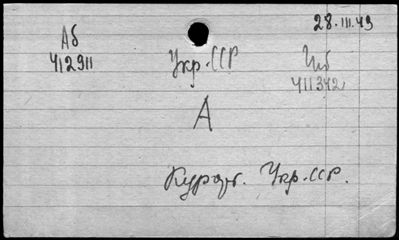 28.III.49
Аб
412911
Укр.ССР
Чб
411342
А
Курорт. Укр.ССР.